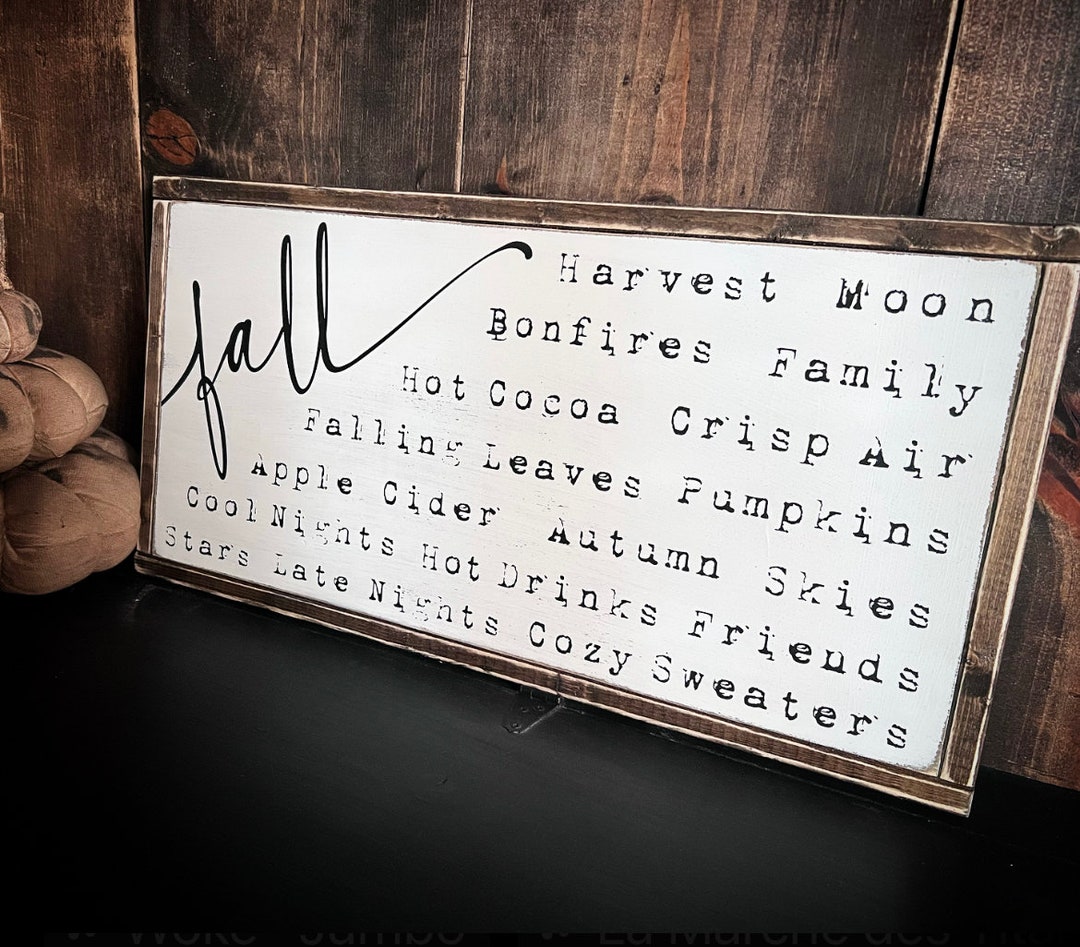 fall
Harvest Moon
Bonfires Family
Hot Cocoa Crisp Air
Falling Leaves Pumpkins
Apple Cider Autumn Skies
Cool Nights Hot Drinks Friends
Stars Late Nights Cozy Sweaters